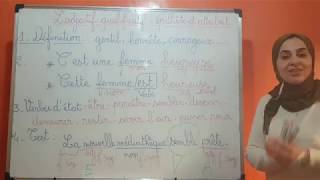 L'adjectif qualificatif épithète et attribut
1. Définition: gentil, honnête, courageux
2. * C'est une femme heureuse.
* Cette femme est heureuse.
3. Verbes d'état: être, paraître, sembler, devenir,
demeurer, rester, avoir l'air, passer pour
4. Test: La nouvelle médiathèque semble prête.